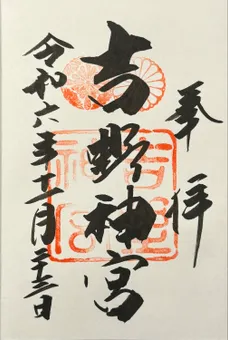 奉拝
吉野神宮
令和六年十一月二十三日